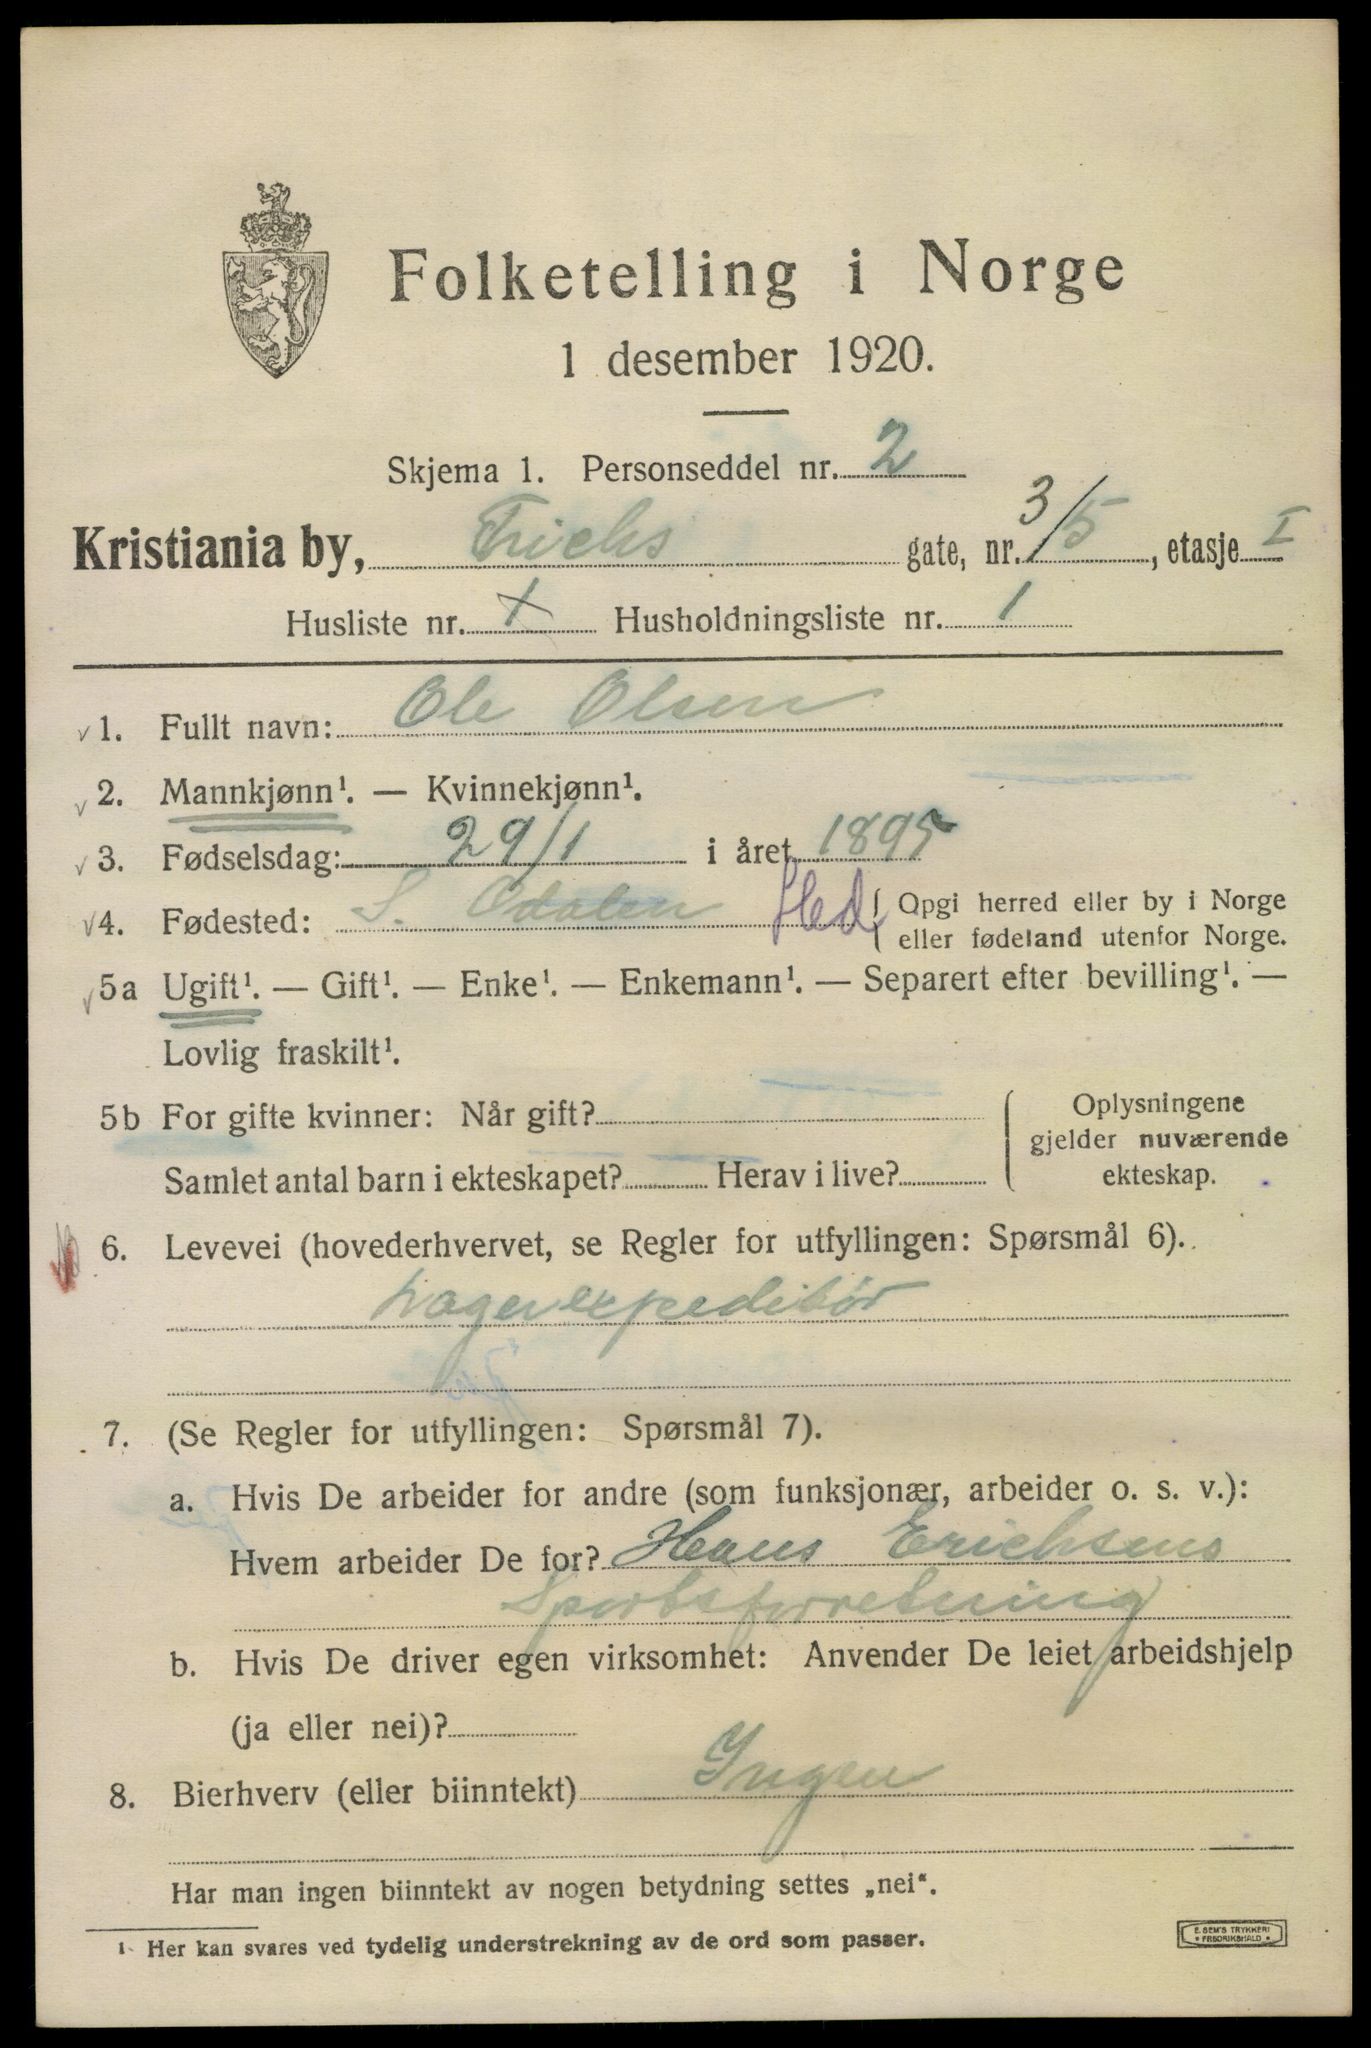 Folketelling i Norge
1 desember 1920.
Skjema 1. Personseddel nr. 2
Kristiania by, Frichs gate, nr. 3/5, etasje I
Husliste nr. 1 Husholdningsliste nr. 1
1. Fullt navn: Ole Olsen
2. Mannkjønn¹. — Kvinnekjønn¹.
3. Fødselsdag: 29/1 i året 1895
4. Fødested: S. Odalen Hed. Opgi herred eller by i Norge
eller fødeland utenfor Norge.
5a Ugift¹. — Gift¹. — Enke¹. — Enkemann¹. — Separert efter bevilling¹. —
Lovlig fraskilt¹.
5b For gifte kvinner: Når gift?
Samlet antal barn i ekteskapet? Herav i live?
Oplysningene
gjelder nuværende
ekteskap.
6. Levevei (hovederhvervet, se Regler for utfyllingen: Spørsmål 6).
Lagerexpeditør
7. (Se Regler for utfyllingen: Spørsmål 7).
a. Hvis De arbeider for andre (som funksjonær, arbeider o. s. v.):
Hvem arbeider De for? Hans Erichsens
Sportsforretning
b. Hvis De driver egen virksomhet: Anvender De leiet arbeidshjelp
(ja eller nei)?
8. Bierhverv (eller biinntekt) Ingen
Har man ingen biinntekt av nogen betydning settes „nei“.
¹ Her kan svares ved tydelig understrekning av de ord som passer.
E. SEM'S TRYKKERI
FREDRIKSHALD